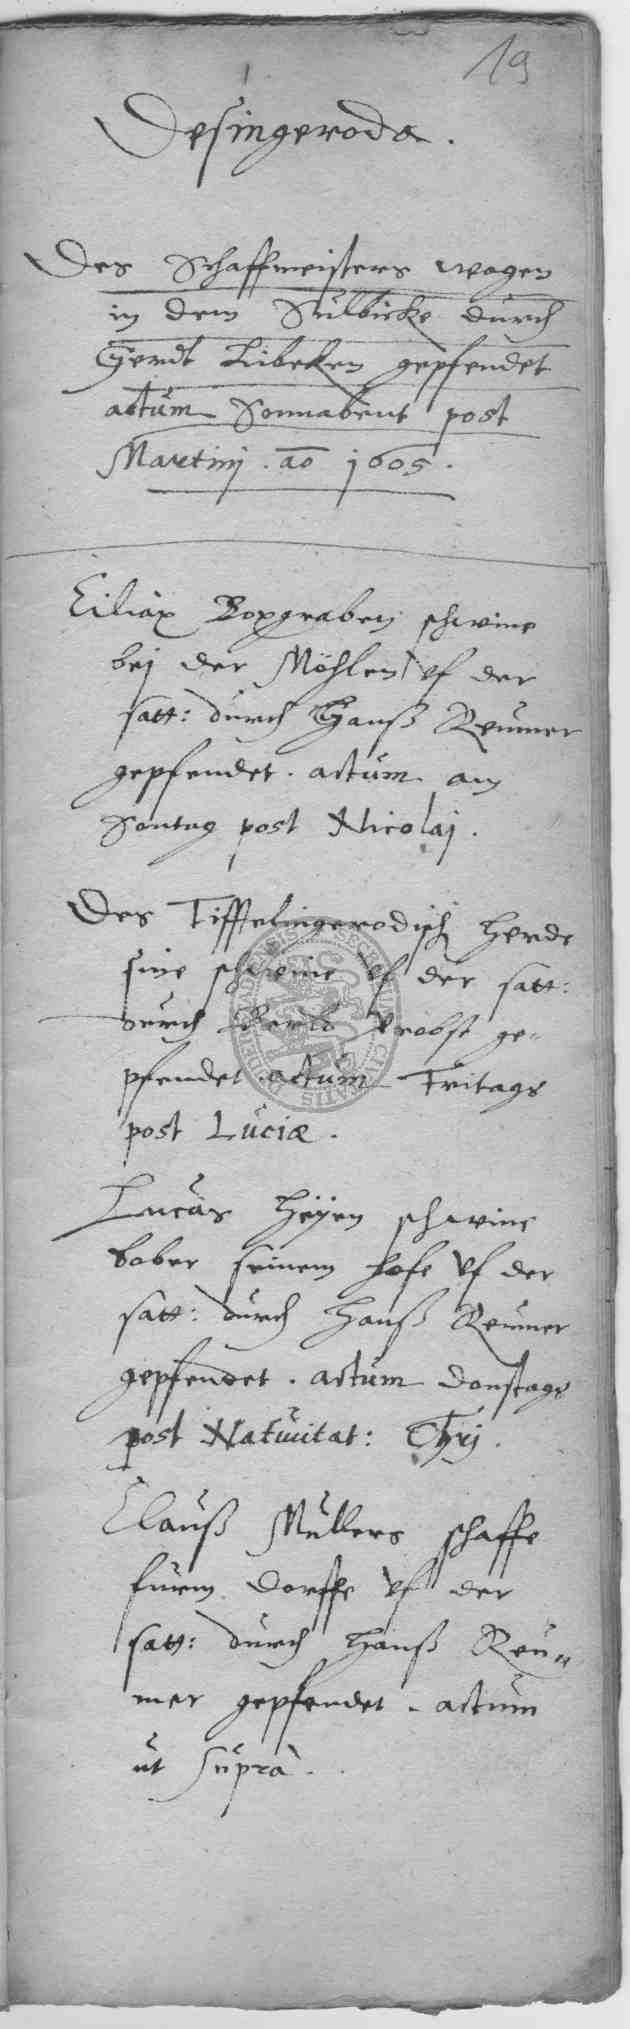 19
Desingeroda.
Des Schaffmeisters wagen
in dem Sulbicke durch
Gerdt Libeken gepfendet
actum Sonnabent post
Martinj. ao 1605.
Ciliax Boxgraben schwine
bej der Möhlen vf der
satt: durch Hanß Reumer
gepfendet. actum am
Sontag post Nicolaj.
Des Tifftelingerodisch herde
sine schweine vf der satt:
durch Probst ge-
pfendet actum Fritags
post Luciæ.
Lucas Heÿen schwine
bober seinem hofe vf der
satt: durch Hanß Reumer
gepfendet. actum Donstags
post Nativitat: Chrj.
Clauß Müllers schaffe
furm dorffe vf der
satt: durch Hanß Reu-
mer gepfendet. actum
ut supra.
SECRETUM CIVITATIS